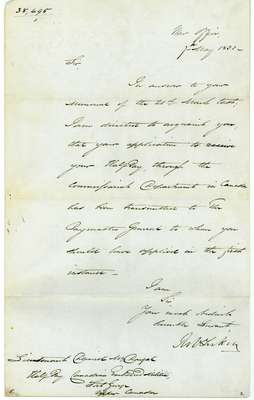 38,695
War Office
7th May 1831
Sir,
In answer to your
memorial of the 20th March last,
I am directed to acquaint you
that your application to receive
your Half Pay through the
Commissariat Department in Canada
has been transmitted to The
Paymaster General to whom you
should have applied in the first
instance.
I am
Sir,
Your most obedient
humble Servant
Lieutenant Colonel
Half Pay Canadian
Fort George
Upper Canada